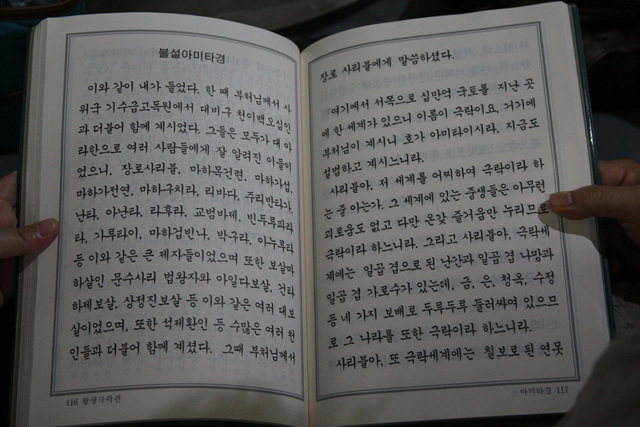 불설아미타경
이와 같이 내가 들었다. 한 때 부처님께서 사
위국 기수급고독원에서 대비구 천이백오십인
과 더불어 함께 계시었다. 그들은 모두가 대 아
라한으로 여러 사람들에게 잘 알려진 이들이
었으니, 장로사리불, 마하목건련, 마하가섭,
마하가전연, 마하구치라, 리바다, 주리반타가,
난타, 아난타, 라후라, 교범바제, 빈두루파라
타, 가루타이, 마하겁빈나, 박구라, 아누루타
등 이와 같은 큰 제자들이었으며 또한 보살마
하살인 문수사리 법왕자와 아일다보살, 건타
하제보살, 상정진보살 등 이와 같은 여러 대보
살이었으며, 또한 석제환인 등 수많은 여러 천
인들과 더불어 함께 계셨다. 그때 부처님께서
116 왕생극락편
장로 사리불에게 말씀하셨다.
『여기에서 서쪽으로 십만억 국토를 지난 곳
에 한 세계가 있으니 이름이 극락이요, 거기에
부처님이 계시니 호가 아미타이시라, 지금도
설법하고 계시느니라.
사리불아, 저 세계를 어찌하여 극락이라 하
는 줄 아는가. 그 세계에 있는 중생들은 아무런
괴로움도 없고 다만 온갖 즐거움만 누리므로
극락이라 하느니라. 그리고 사리불아, 극락세
계에는 일곱 겹으로 된 난간과 일곱 겹 나망과
일곱 겹 가로수가 있는데, 금, 은, 청옥, 수정
등 네 가지 보배로 두루두루 둘러싸여 있으므
로 그 나라를 또한 극락이라 하느니라.
사리불아, 또 극락세계에는 칠보로 된 연못
아미타경 117